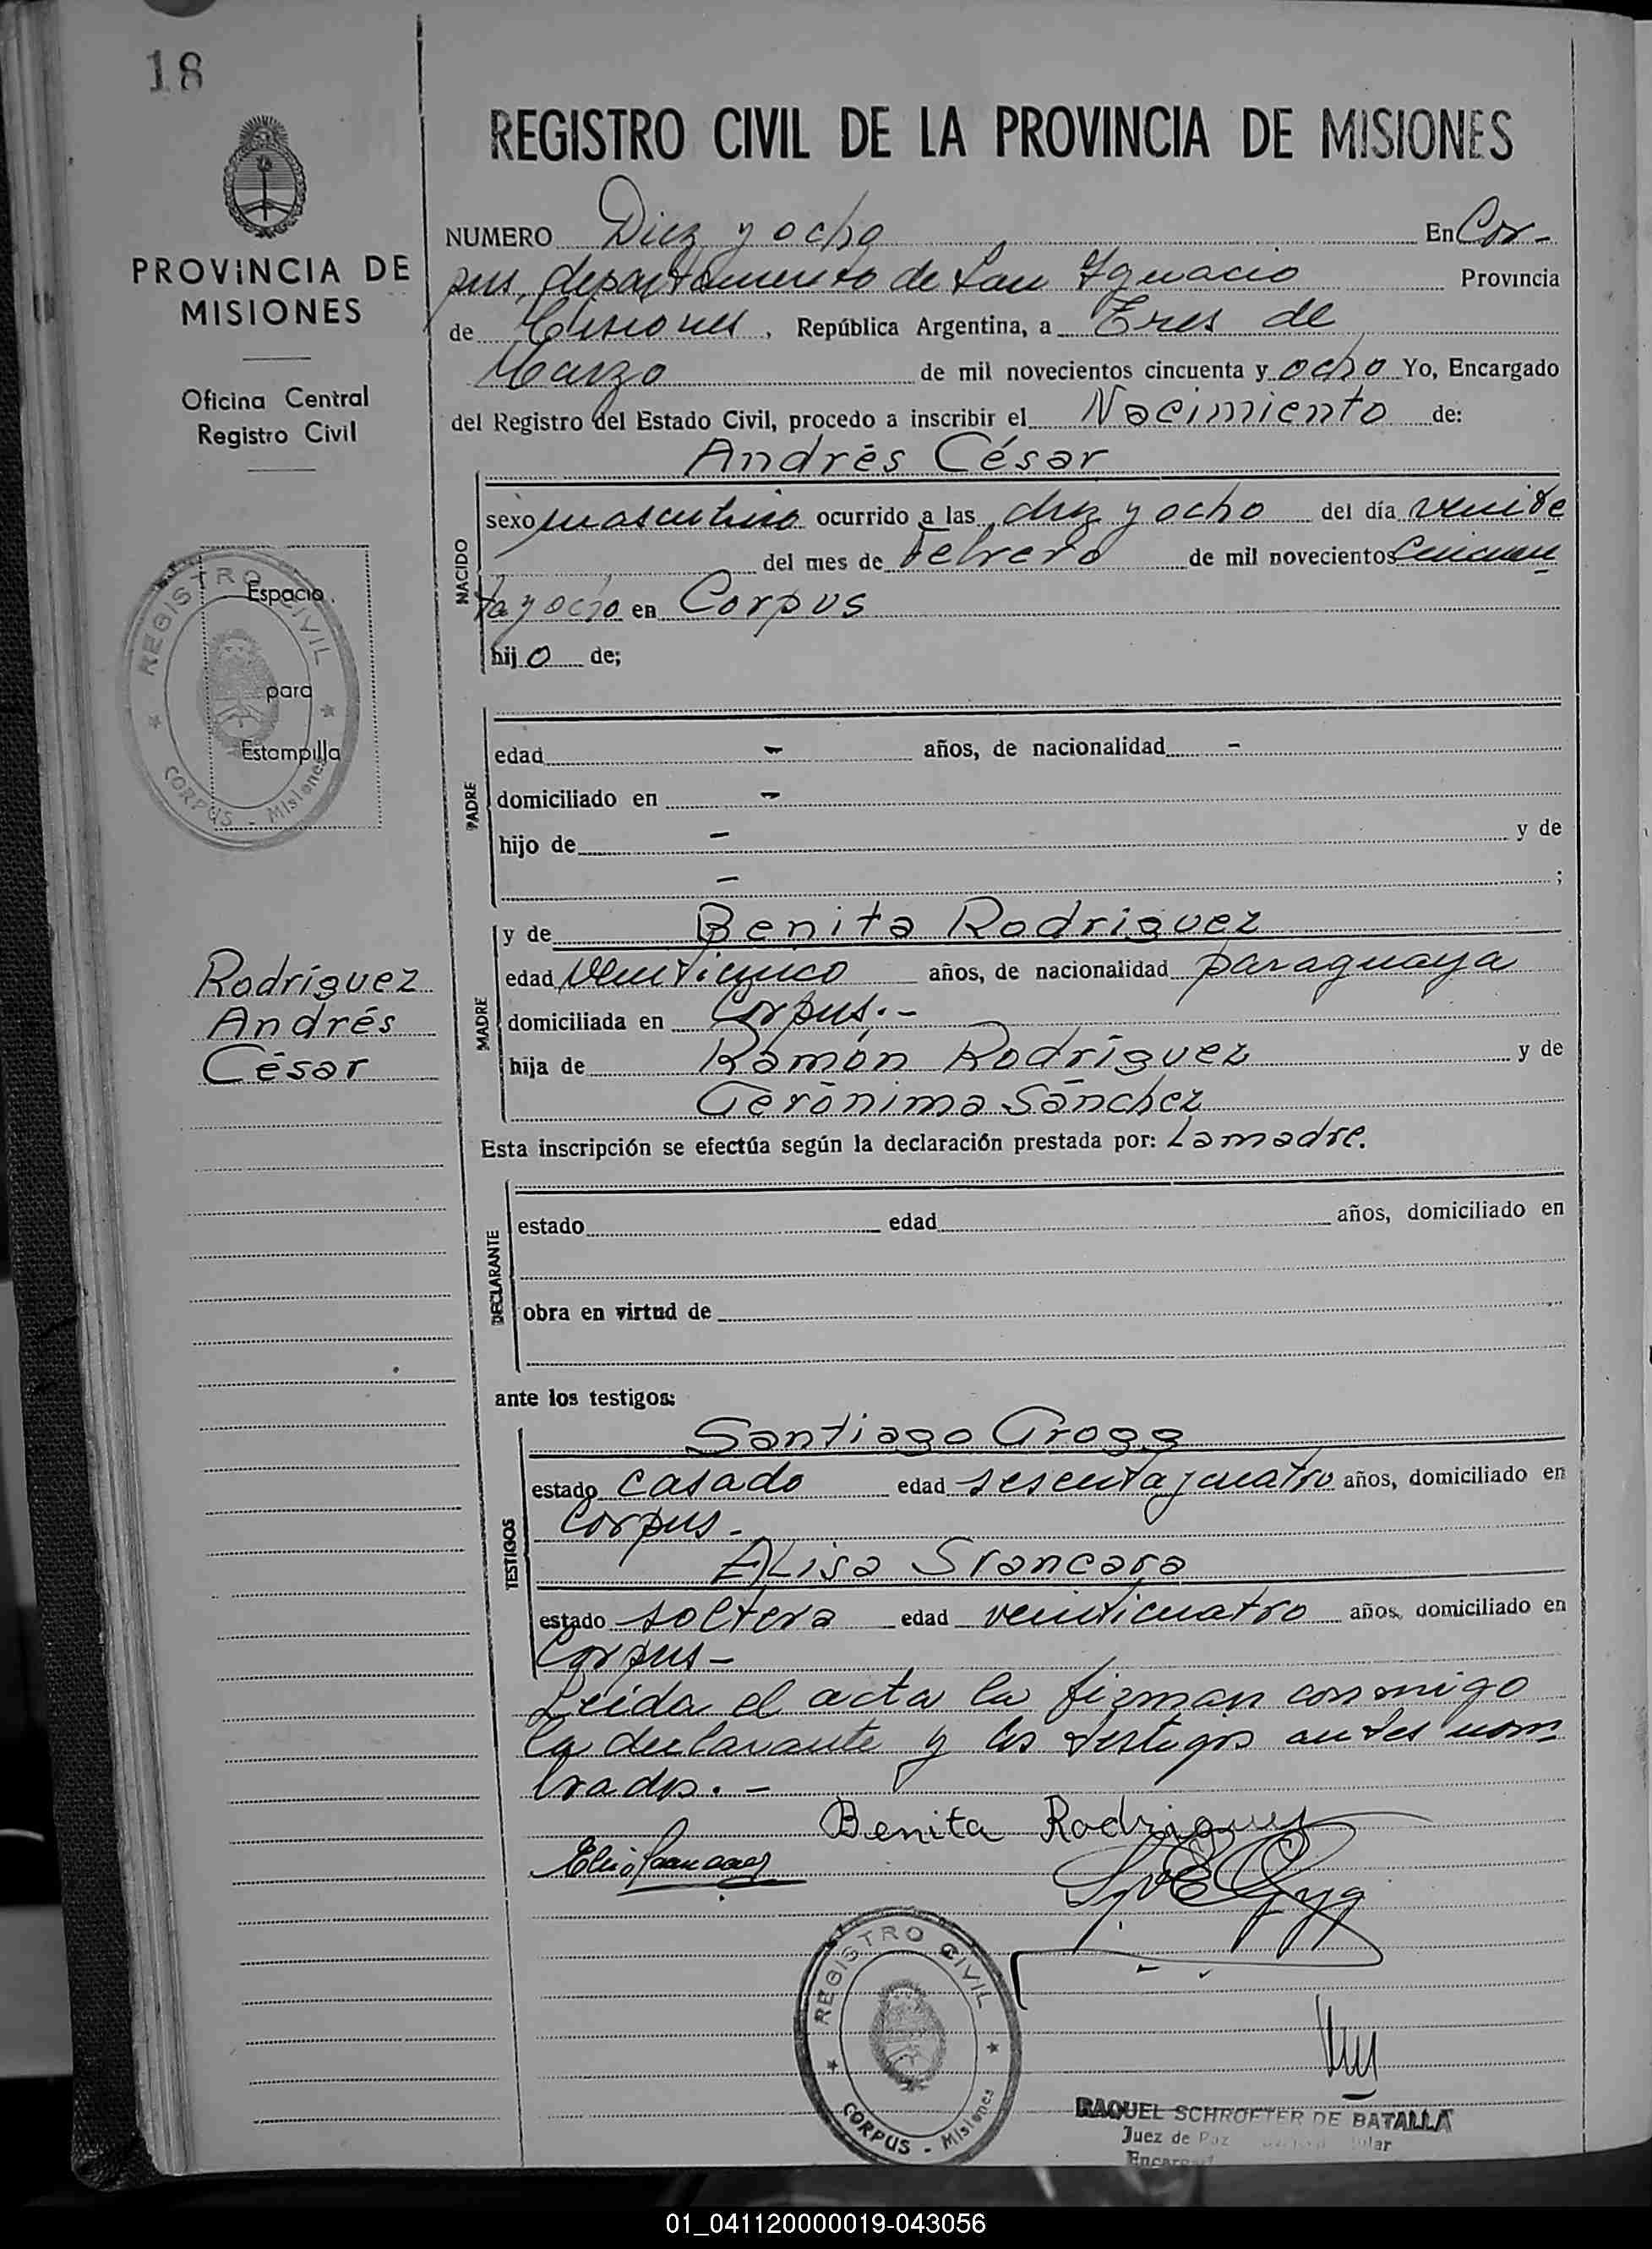 18
REGISTRO CIVIL DE LA PROVINCIA DE MISIONES
PROVINCIA DE
MISIONES
Oficina Central
Registro Civil
NUMERO Diez y ocho En Cor-
pus, departamento de San Ygnacio Provincia
de Misiones, República Argentina, a Tres de
Marzo de mil novecientos cincuenta y ocho Yo, Encargado
del Registro del Estado Civil, procedo a inscribir el Nacimiento de:
Andrés César
NACIDO
sexo masculino ocurrido a las diez y ocho del día veinte
del mes de Febrero de mil novecientos cincuen
ta y ocho en Corpus
hijo de;
REGISTRO CIVIL
CORPUS - Misiones
Espacio
para
Estampilla
PADRE
edad - años, de nacionalidad -
domiciliado en -
hijo de - y de
- ;
Rodríguez
Andrés
César
MADRE
y de Benita Rodriguez
edad veinticinco años, de nacionalidad paraguaya
domiciliada en Corpus.-
hija de Ramón Rodríguez y de
Gerónima Sánchez
Esta inscripción se efectúa según la declaración prestada por: La madre.
DECLARANTE
estado edad años, domiciliado en
obra en virtud de
ante los testigos:
TESTIGOS
Santiago Grogg
estado casado edad sesenta y cuatro años, domiciliado en
Corpus-
ELisa
estado soltera edad veinticuatro años, domiciliado en
Corpus-
Leída el acta la firman conmigo
la declarante y los testigos antes nom
brados.-
Benita Rodriguez
REGISTRO CIVIL
CORPUS - Misiones
RAQUEL SCHROETER DE BATALLA
Juez de Paz
01_041120000019-043056